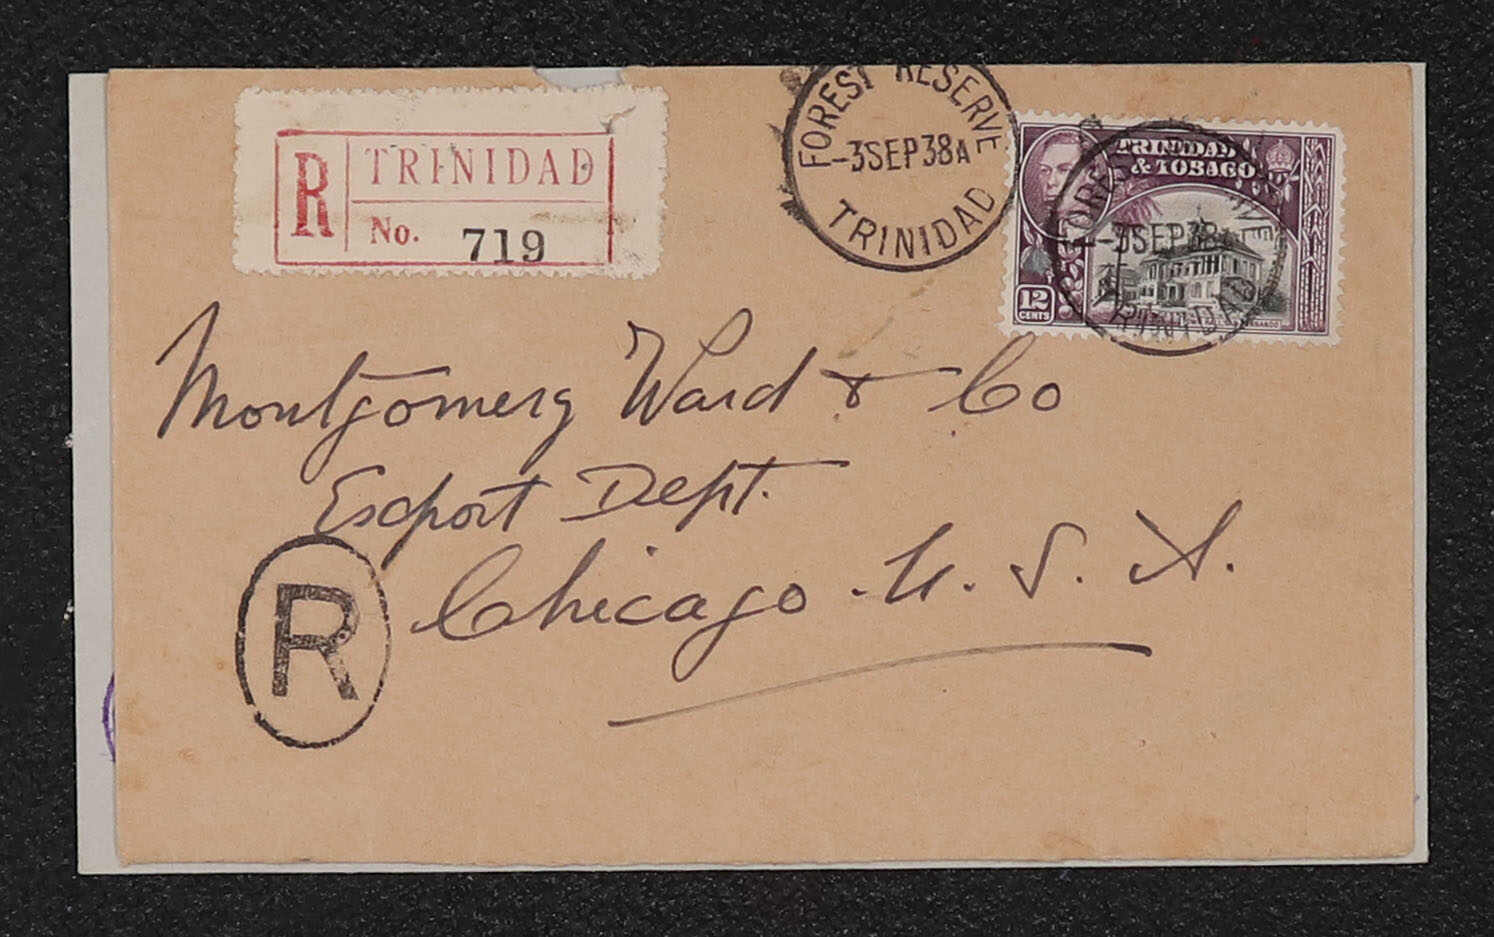 R TRINIDAD
No. 719
FOREST RESERVE
-3SEP38A
TRINIDAD
TRINIDAD
& TOBAGO
12
CENTS
-3SEP38
TRINIDAD
Montgomery Ward & Co
Export Dept.
Chicago. U. S. A.
R